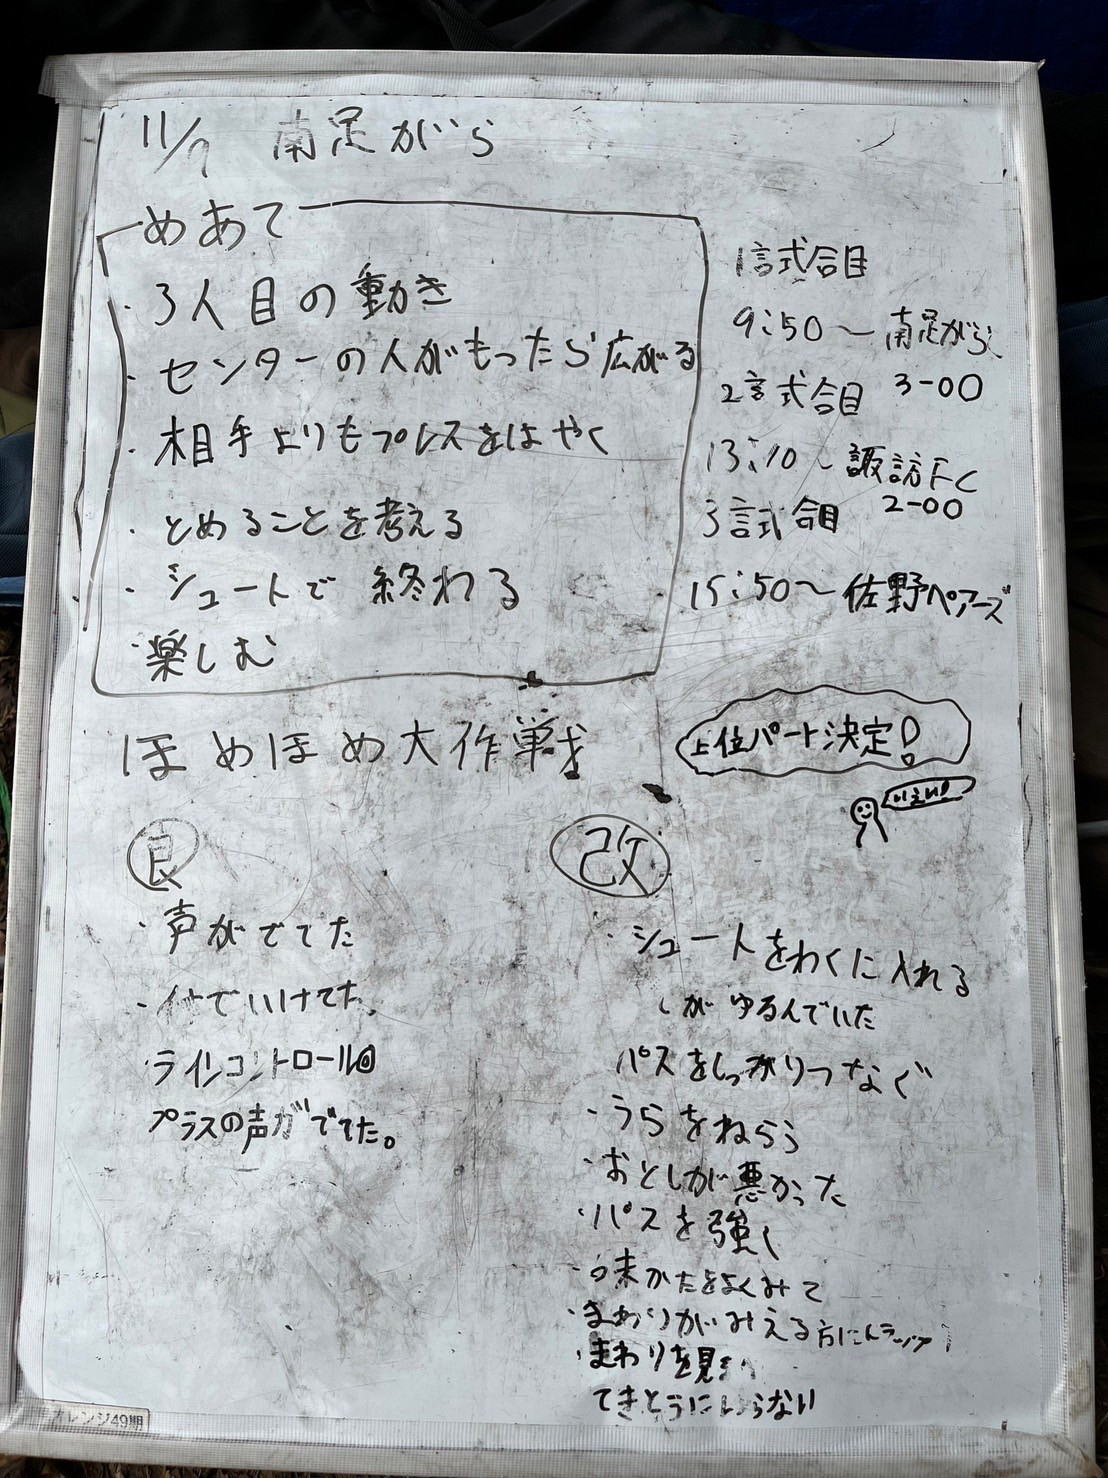 11/9 南足がら
めあて
・3人目の動き
・センターの人がもったら広がる
・相手よりもプレスをはやく
・とめることを考える
・シュートで終わる
・楽しむ
1試合目
9:50〜南足がら
2試合目 3-00
13:10〜諏訪FC
3試合目 2-00
15:50〜佐野ベアーズ
上位パート決定!
いえい!
ほめほめ大作戦
良
・声がでてた
でいけてた
プラスの声がでてた。
改
・シュートをわくに入れる
がゆるんでいた
パスをしっかりつなぐ
・うらをねらう
・おとしが悪かった
・パスを強く
・味かたをよくみて
・まわりがみえる方にトラップ
・まわりを見
てきとうに らない
オレンジ49期